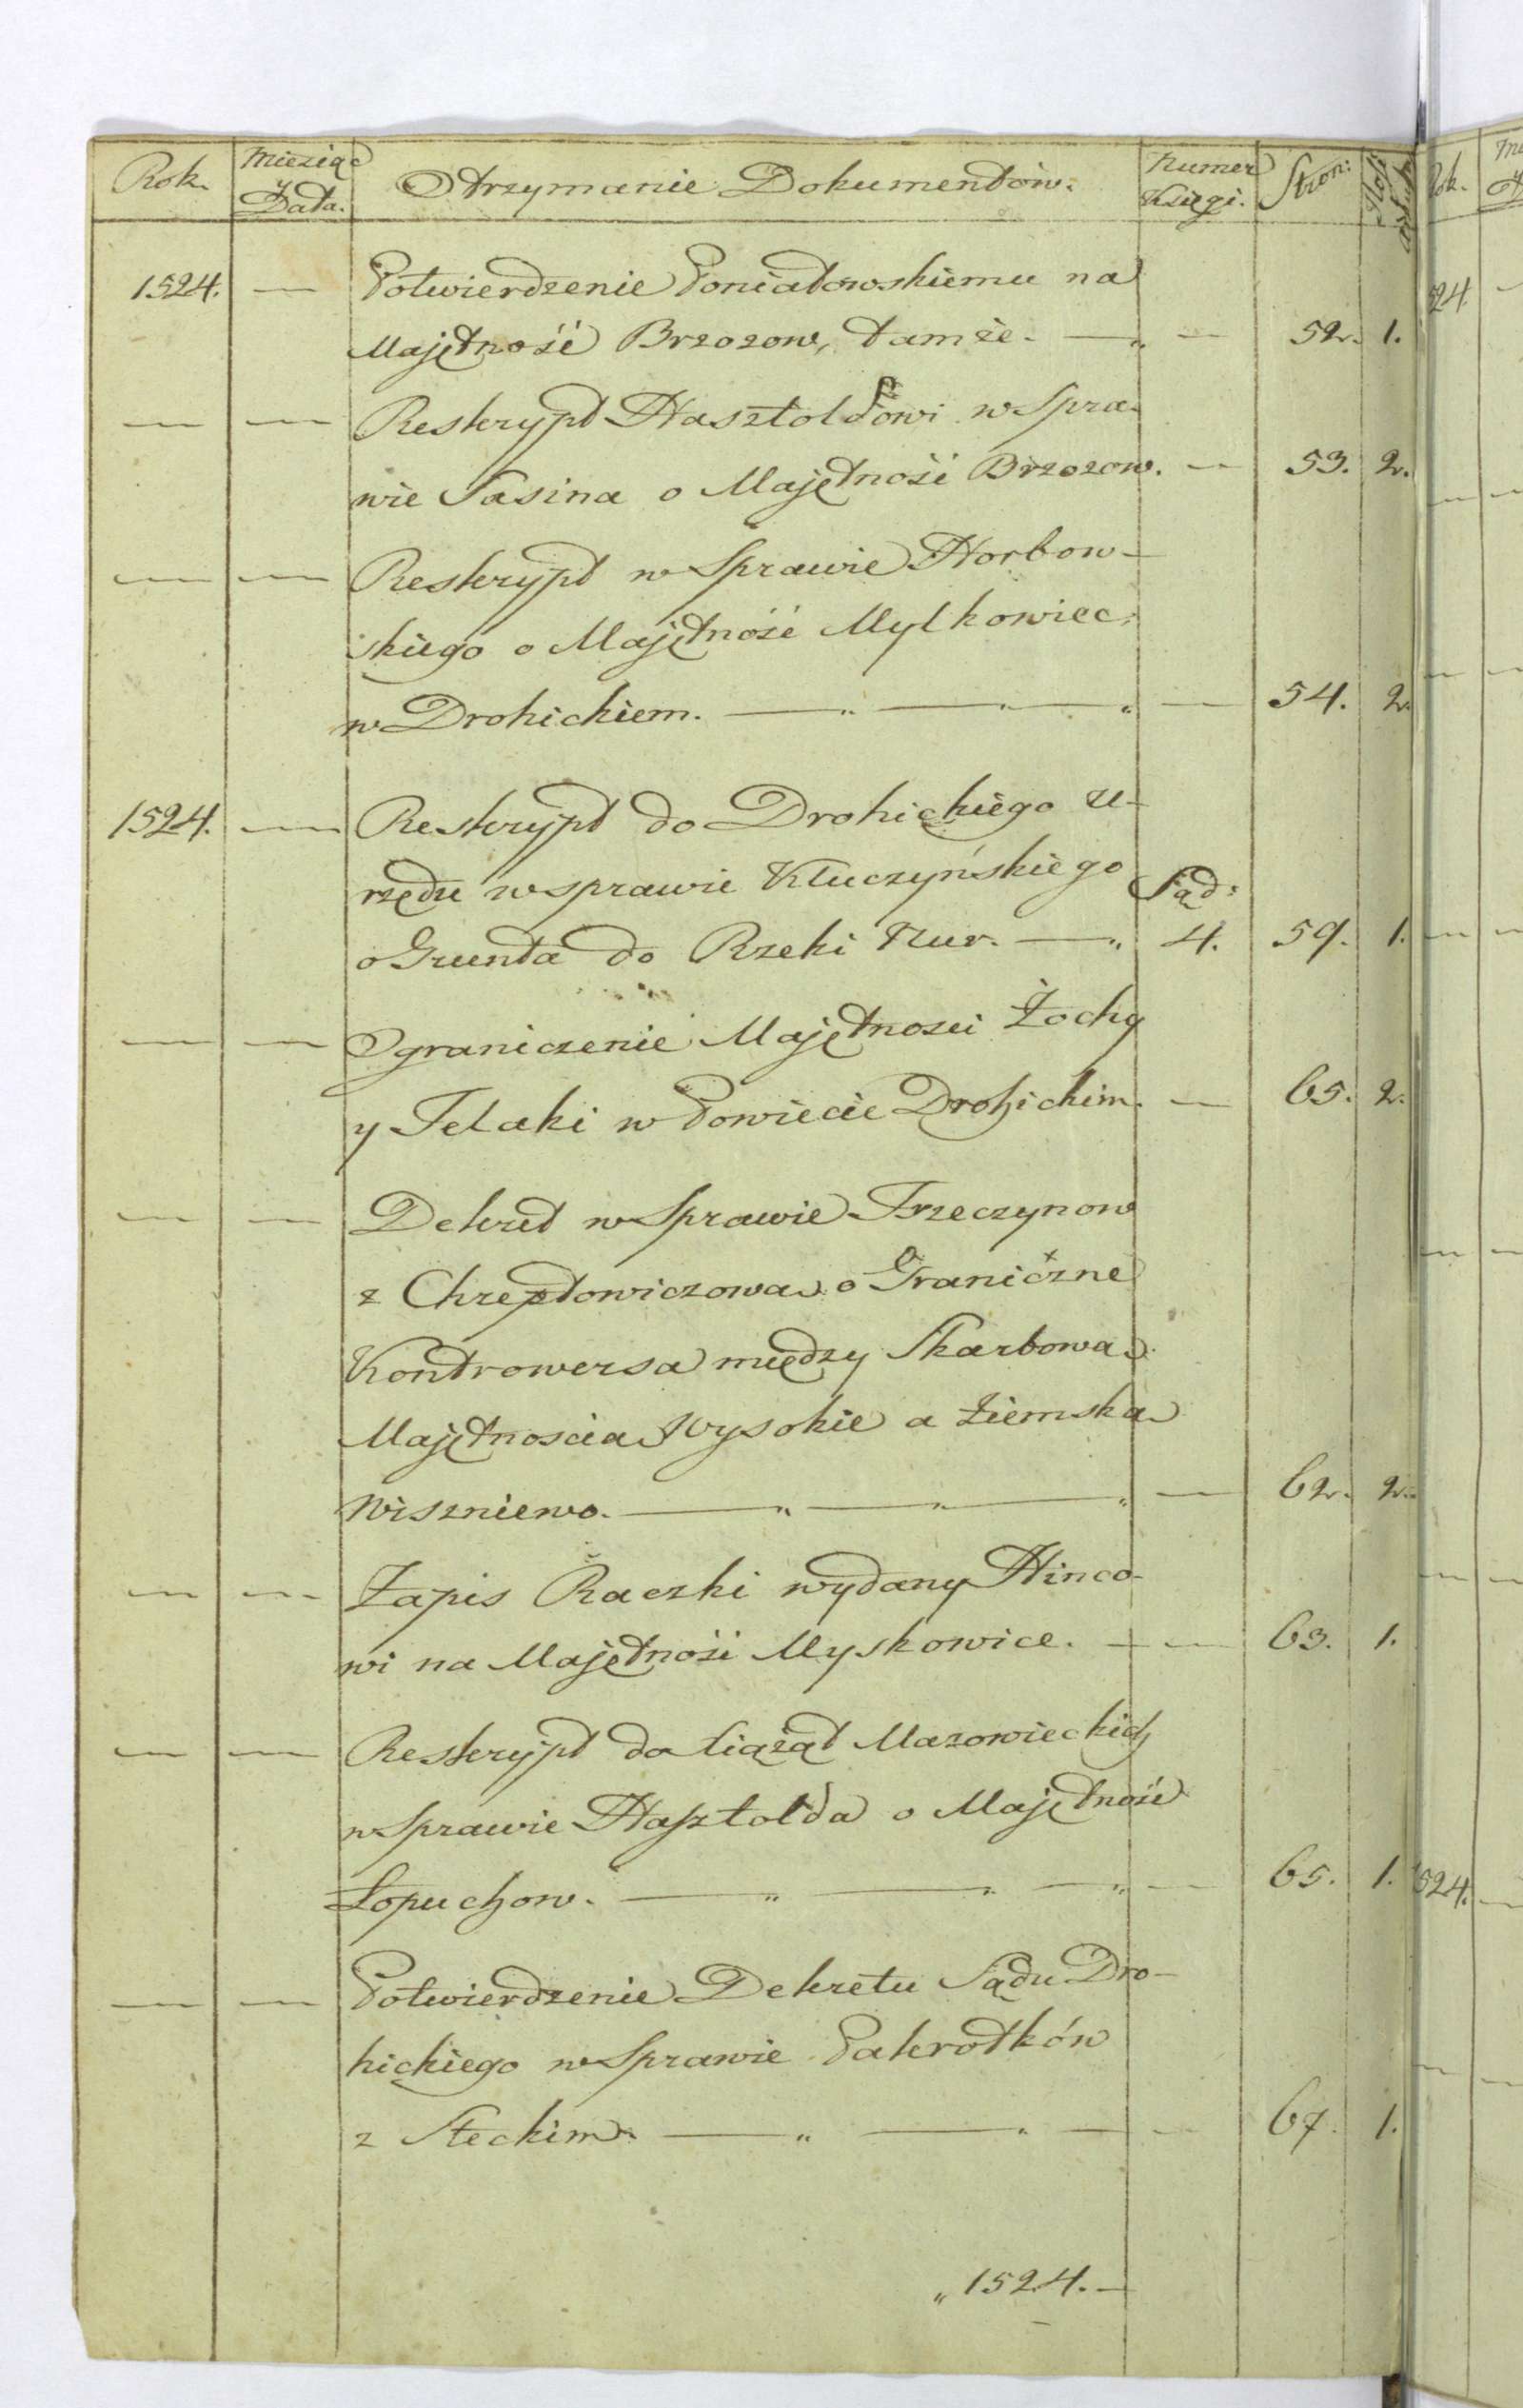 Rok. Miesiąc y Data. Otrzymanie Dokumentów. Numer Księgi. Stron:
1524. — Potwierdzenie Poniatowskiemu na
Majętność Brzozow, tamże. — „ — 52. 1.
— — Reskrypt Hasztoldowi w Spra-
wie Sasina o Majętnośi Brzozow. — 53. 2.
— — Reskrypt w Sprawie Horbow-
skiego o Majętność Mylkowiec
w Drohickiem. — „ — „ — 54. 2.
1524. — Reskrypt do Drohickiego U-
rzędu w sprawie Kluczyńskiego Sąd:
o Grunta do Rzeki Nur. — „ 4. 59. 1.
— — Ograniczenie Majętnosci Żochy
y Telaki w Powiecie Drohickim. — 65. 2.
— — Dekret w Sprawie Trzeczynow
z Chreptowiczową o Graniczne
Kontrowersa między Skarbową
Majętnoscią Wysokie a Ziemską
Wiszniewo. — „ — „ — „ — 62. 2.
— — Zapis Raczki wydany Hinco-
wi na Majętnośi Myskowice. — — 63. 1.
— — Reskrypt do Xiążąt Mazowieckich
w Sprawie Hasztolda o Majętność
Łopuchow. — „ — „ — „ — 65. 1.
— — Potwierdzenie Dekretu Sądu Dro-
hickiego w Sprawie Pakrotków
z Steckim. — „ — „ — — 67. 1.
„ 1524. —